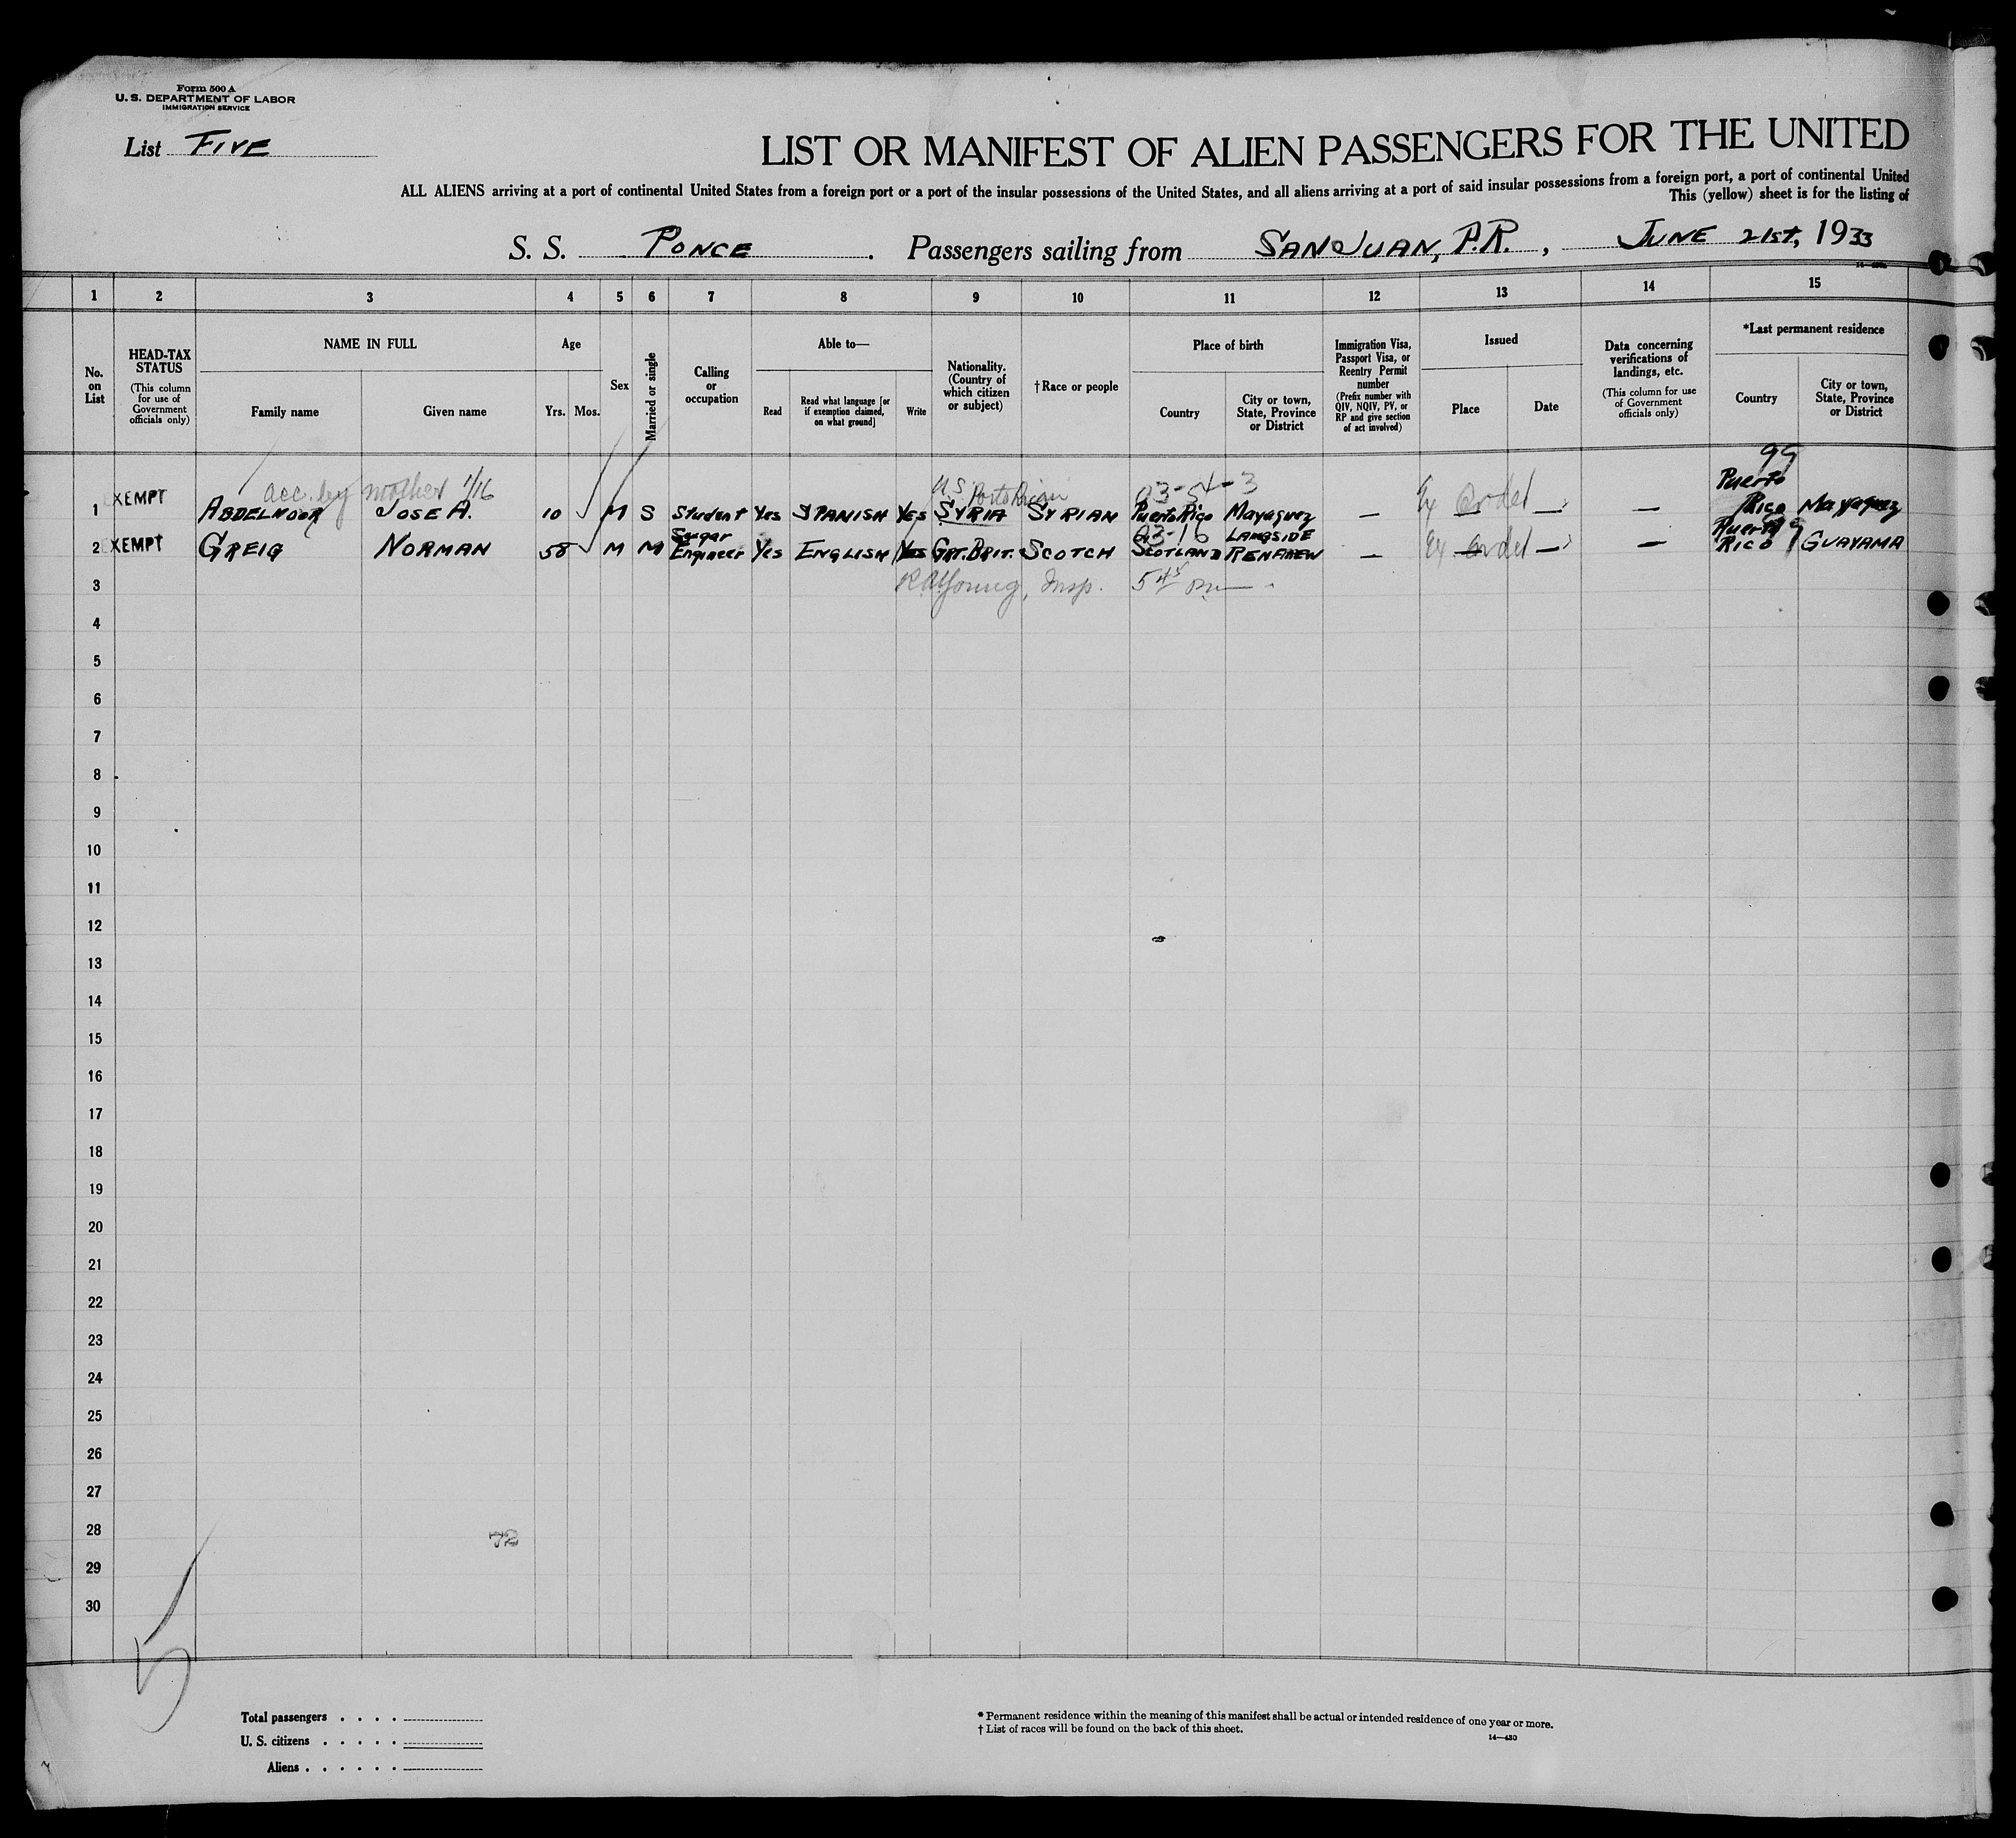 Form 500 A
U. S. DEPARTMENT OF LABOR
IMMIGRATION SERVICE
List FIVE
LIST OR MANIFEST OF ALIEN PASSENGERS FOR THE UNITED
ALL ALIENS arriving at a port of continental United States from a foreign port or a port of the insular possessions of the United States, and all aliens arriving at a port of said insular possessions from a foreign port, a port of continental United
This (yellow) sheet is for the listing of
S. S. PONCE . Passengers sailing from SAN JUAN, P.R. , JUNE 21st, 1933
1 2 3 4 5 6 7 8 9 10 11 12 13 14 15
No. on List
HEAD-TAX STATUS
(This column for use of Government officials only)
NAME IN FULL
Family name Given name
Age
Yrs. Mos.
Sex
Married or single
Calling or occupation
Able to—
Read
Read what language [or if exemption claimed, on what ground]
Write
Nationality. (Country of which citizen or subject)
†Race or people
Place of birth
Country
City or town, State, Province or District
Immigration Visa, Passport Visa, or Reentry Permit number
(Prefix number with QIV, NQIV, PV, or RP and give section of act involved)
Issued
Place Date
Data concerning verifications of landings, etc.
(This column for use of Government officials only)
*Last permanent residence
Country
City or town, State, Province or District
99
acc. by mother 1/16 U.S. Porto Rican 03-54-3
1 EXEMPT ABDELNOOR JOSE A. 10 M S Student Yes SPANISH Yes SYRIA SYRIAN Puerto Rico Mayaguez — — — — Puerto Rico Mayaguez
03-16 99
2 EXEMPT GREIG NORMAN 58 M M Sugar Engineer Yes ENGLISH Yes GRT. BRIT. SCOTCH SCOTLAND LANGSIDE RENFREW — — — — Puerto Rico GUAYAMA
3 Young, Insp. 5 45 pm
4
5
6
7
8
9
10
11
12
13
14
15
16
17
18
19
20
21
22
23
24
25
26
27
28
72
29
30
5
Total passengers . . . .
U. S. citizens . . . . .
Aliens . . . . . .
* Permanent residence within the meaning of this manifest shall be actual or intended residence of one year or more.
† List of races will be found on the back of this sheet.
14—430